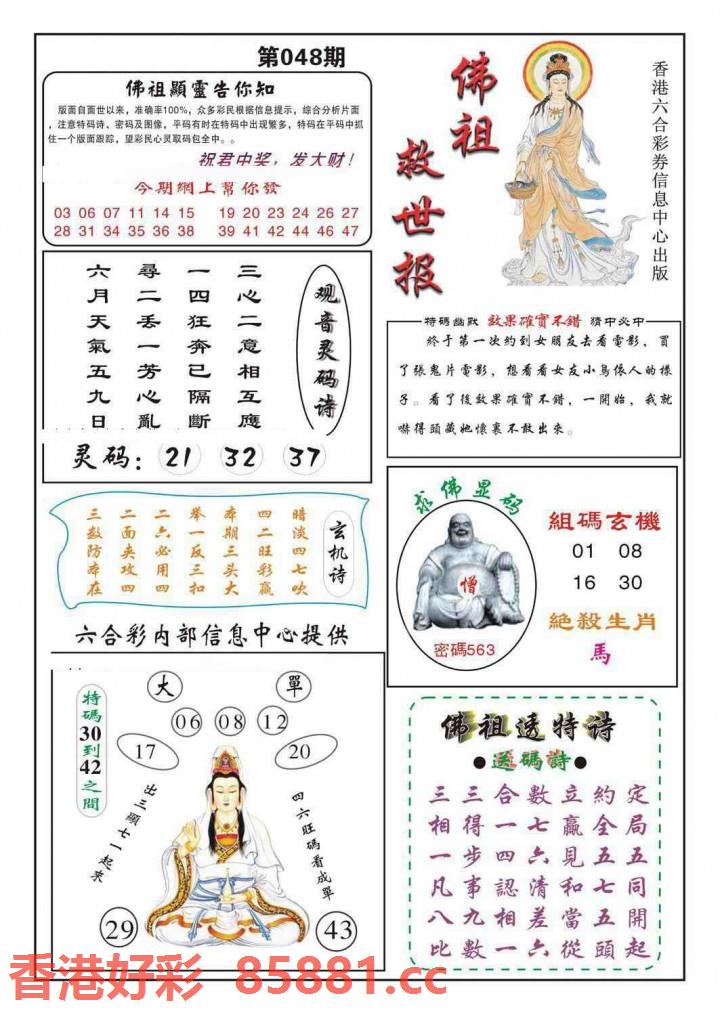 第048期
佛祖顯靈告你知
版面自面世以来，准确率100%，众多彩民根据信息提示，综合分析片面
，注意特码诗、密码及图像，平码有时在特码中出现繁多，特码在平码中抓
住一个版面跟踪，望彩民心灵取码包全中。。
祝君中奖，发大财！
今期網上幫你發
03 06 07 11 14 15 19 20 23 24 26 27
28 31 34 35 36 38 39 41 44 45 46 47
佛祖
救世报
香港六合彩券信息中心出版
三心二意相互應
一四狂奔已隔斷
尋二丢一芳心亂
六月天氣五九日
观音灵码诗
灵码：21 32 37
特碼幽默 效果確實不错 猜中必中
終于第一次約到女朋友去看電影，買
了張鬼片電影，想看看女友小鳥依人的樣
子。看了後效果確實不错，一開始，我就
嚇得頭藏她懷裏不敢出來。
暗淡四七吹
四二旺彩赢
本期三头大
举一反三扣
二六必用四
二面夹攻四
三数防本在
玄机诗
六合彩内部信息中心提供
求佛显码
僧
密碼563
組碼玄機
01 08
16 30
絕殺生肖
馬
大
單
06 08 12
17
20
特碼30到42之間
出三顯七一起來
四六旺碼看成單
29
43
佛祖透特诗
●送碼詩●
三三合數立約定
相得一七贏全局
一步四六見五五
凡事認清和七同
八九相差當五開
比數一六從頭起
香港好彩 85881.cc